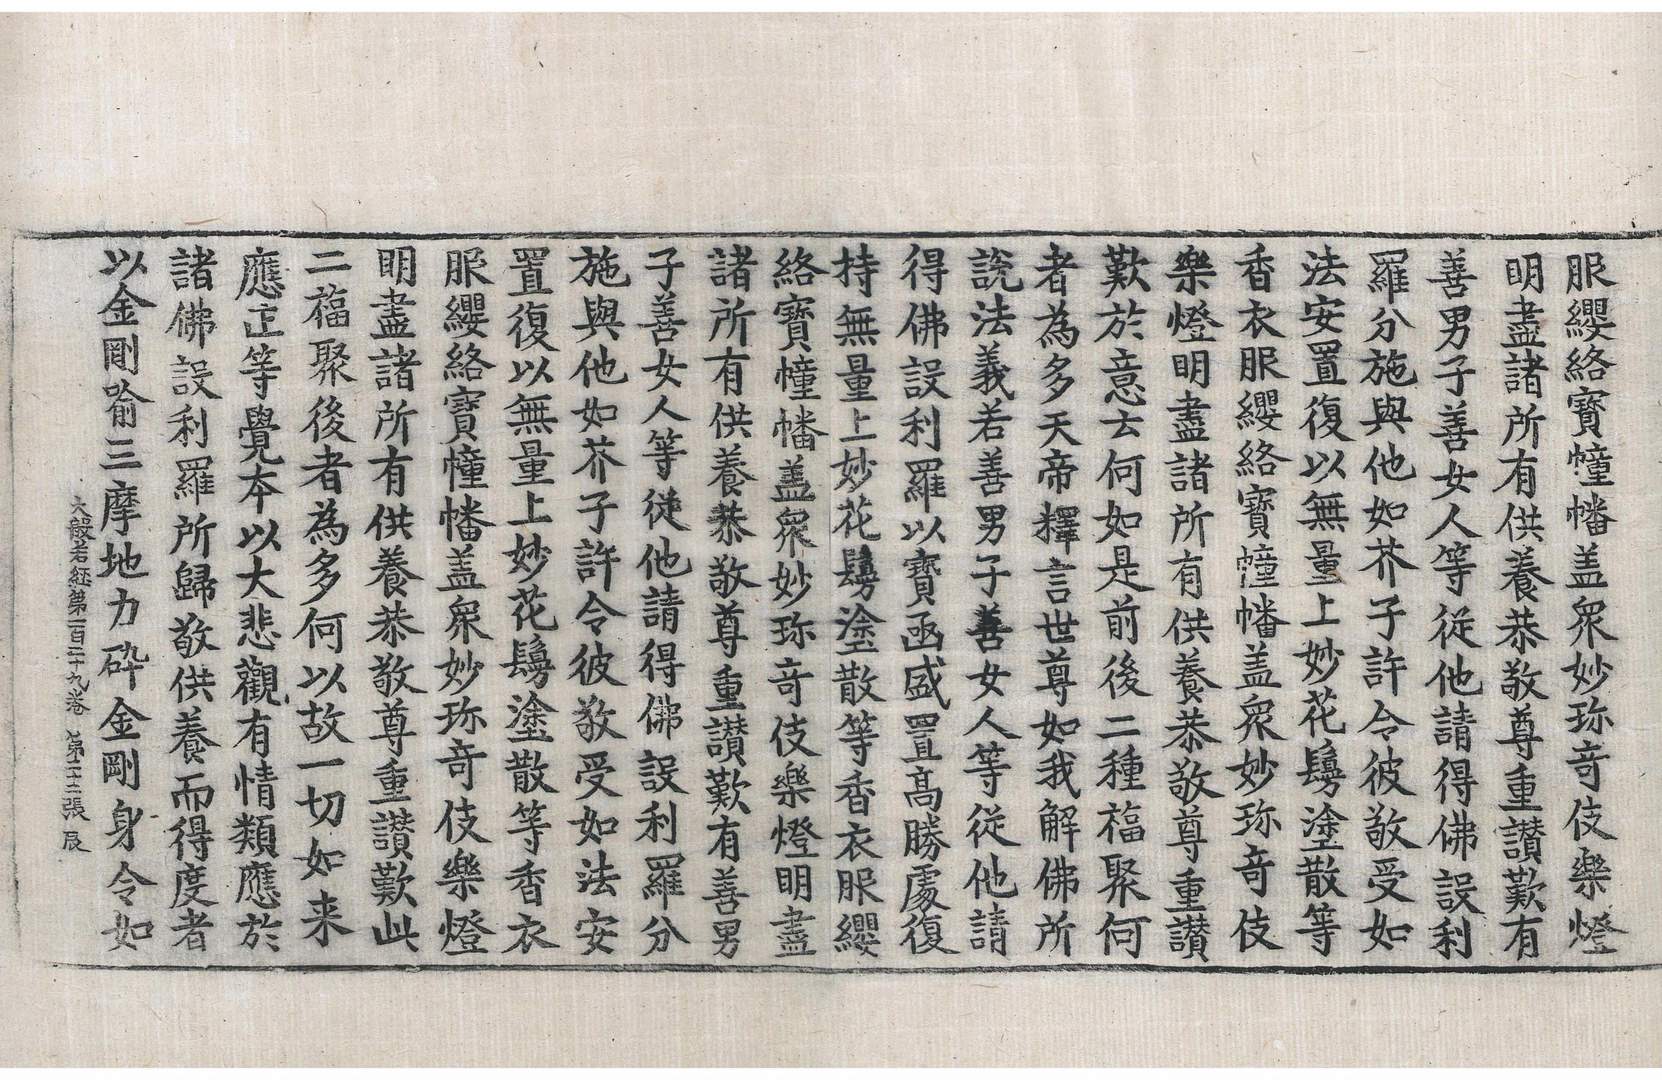 服纓絡寶幢幡盖衆妙珎竒伎樂燈
明盡諸所有供養恭敬尊重讃歎有
善男子善女人等從他請得佛設利
羅分施與他如芥子許令彼敬受如
法安置復以無量上妙花鬘塗散等
香衣服纓絡寶幢幡盖衆妙珎竒伎
樂燈明盡諸所有供養恭敬尊重讃
歎於意云何如是前後二種福聚何
者為多天帝釋言世尊如我解佛所
說法義若善男子善女人等從他請
得佛設利羅以寶函盛置高勝處復
持無量上妙花鬘塗散等香衣服纓
絡寶幢幡盖衆妙珎竒伎樂燈明盡
諸所有供養恭敬尊重讃歎有善男
子善女人等從他請得佛設利羅分
施與他如芥子許令彼敬受如法安
置復以無量上妙花鬘塗散等香衣
服纓絡寶幢幡盖衆妙珎竒伎樂燈
明盡諸所有供養恭敬尊重讃歎此
二福聚後者為多何以故一切如来
應正等覺本以大悲觀有情類應於
諸佛設利羅所歸敬供養而得度者
以金剛喻三摩地力碎金剛身令如
大般若経第一百二十九卷 第二十二張 辰